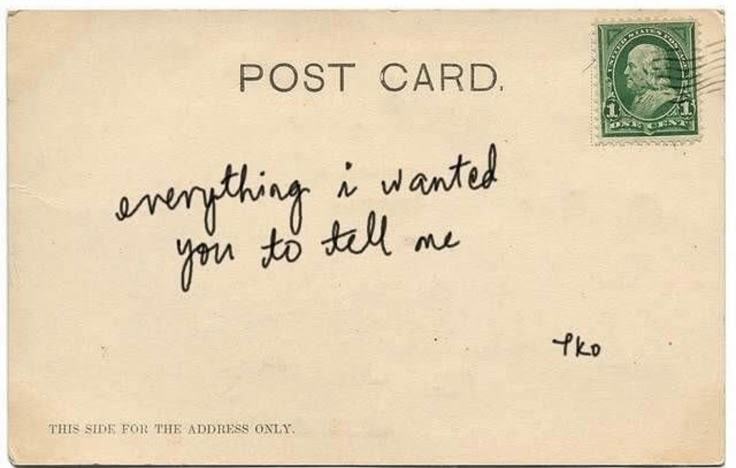 POST CARD.
UNITED STATES POSTAGE
1 1
ONE CENT
everything i wanted
you to tell me
tko
THIS SIDE FOR THE ADDRESS ONLY.